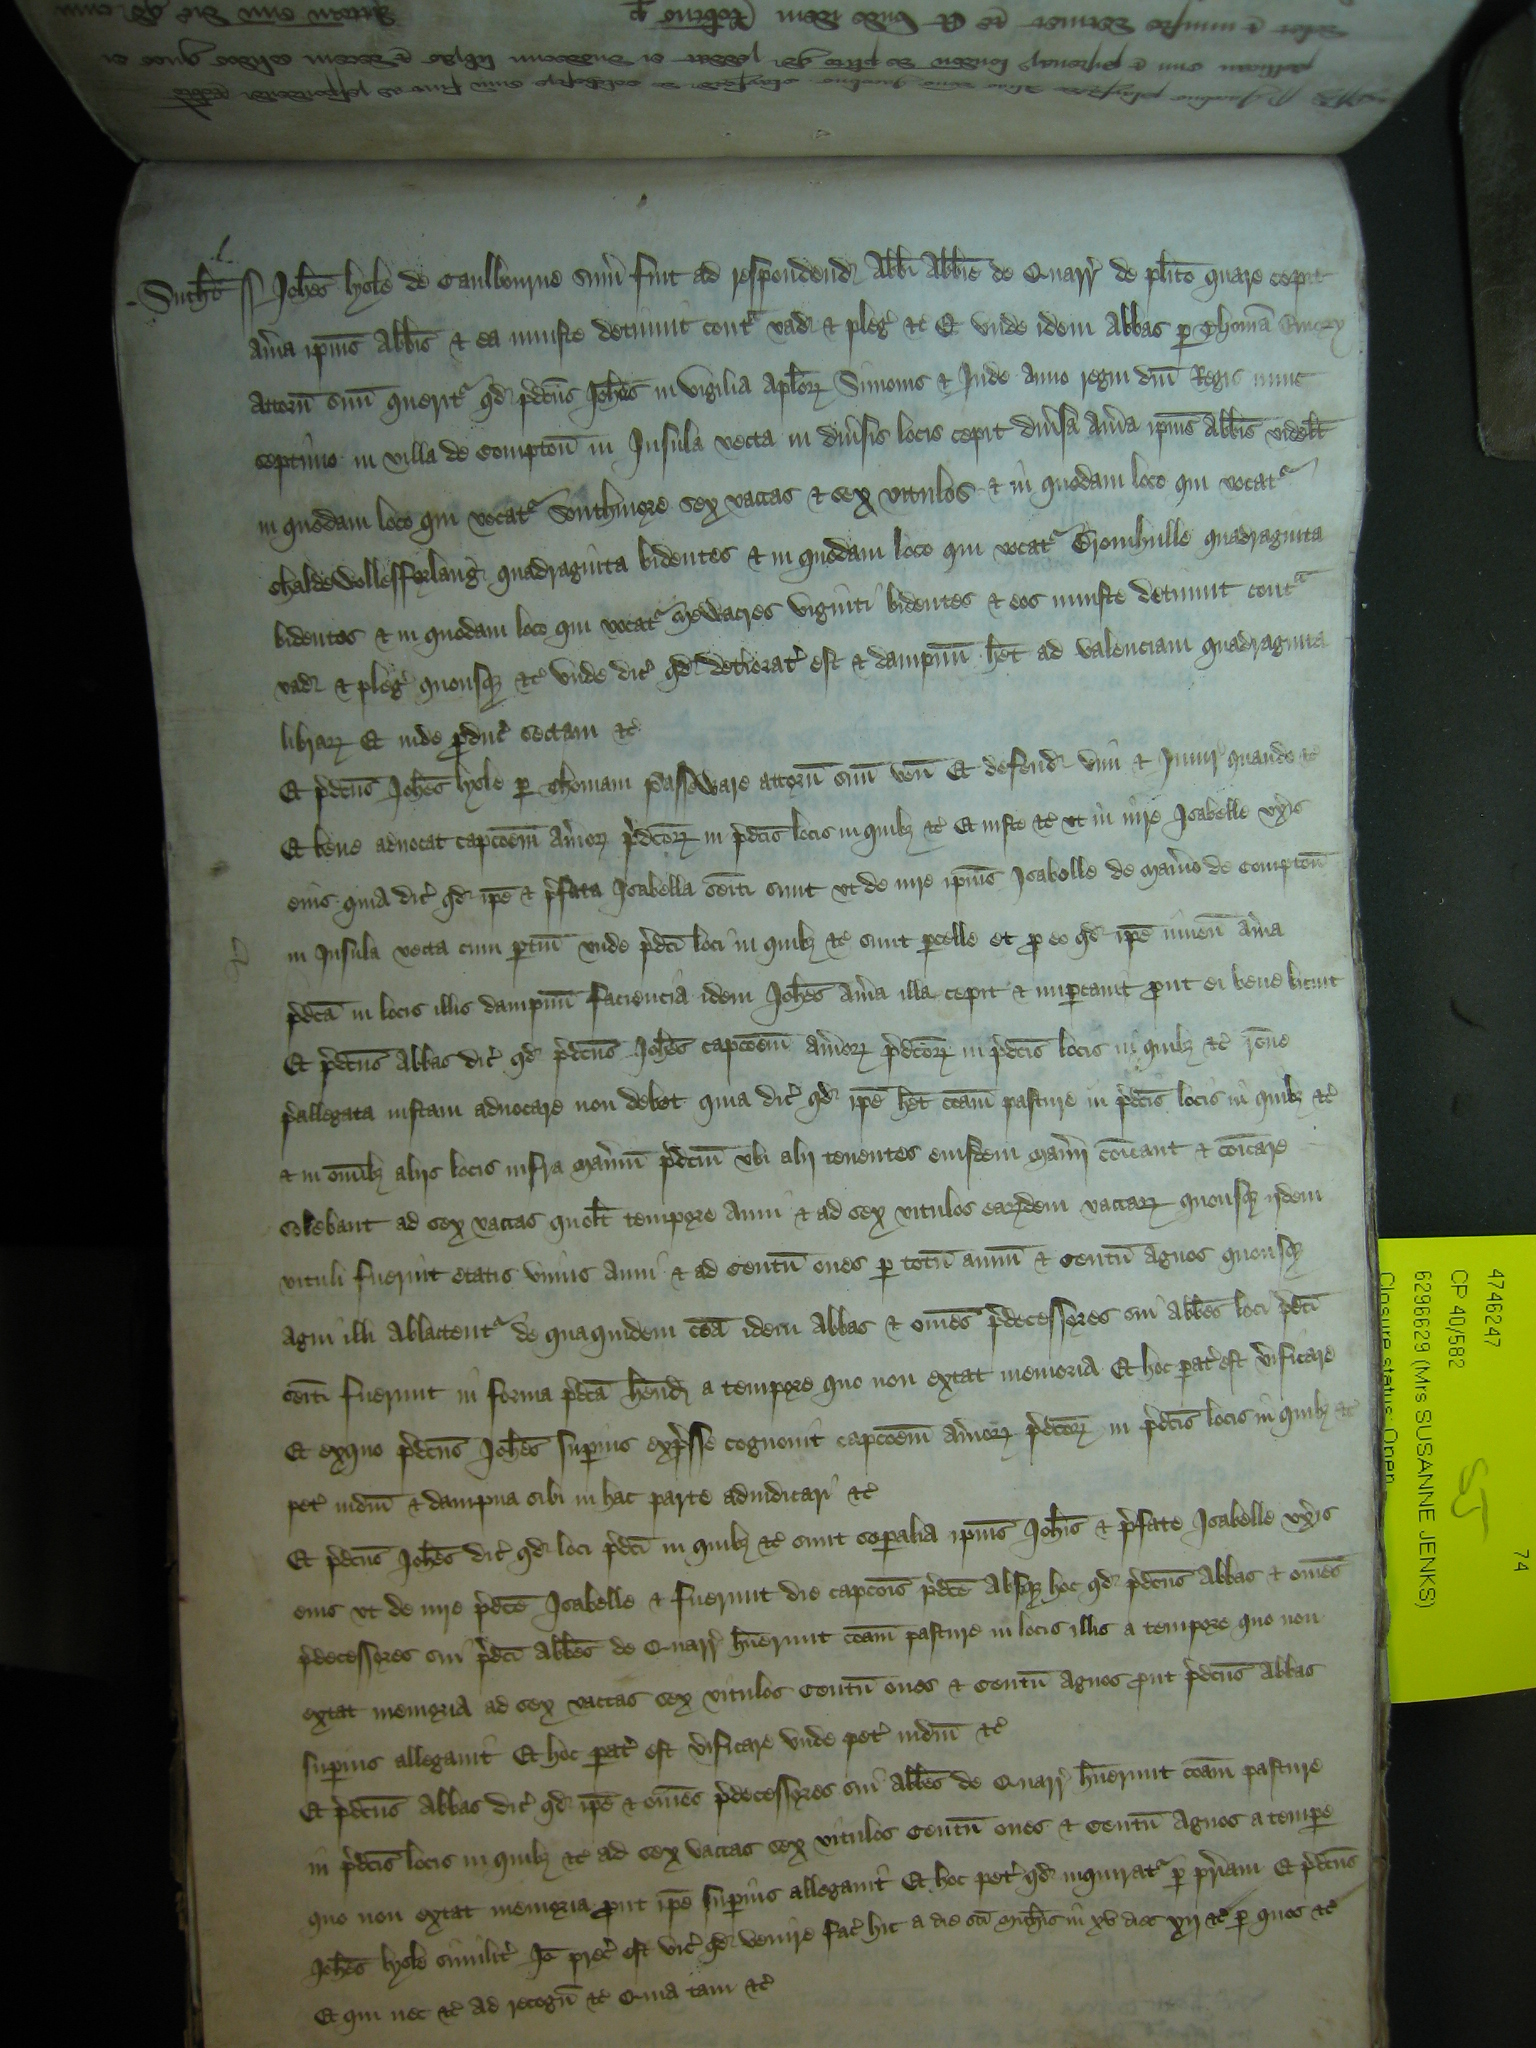 Suth't ss Joh'es lysle de Caulbourne sum' fuit ad respondend' Abb'i Abb'ie de Quarr' de pl'ito quare cepit
Au'ia ip'ius Abb'is & ea iniuste detinuit cont'a vad' & pleg' &c Et vnde idem Abbas p' Thomā Emory
attorn' suu' querit' qd' p'dcus Joh'es in vigilia Apl'or' Simonis & Jude anno regni dn'i Regis nunc
septimo in villa de Compton' in Insula vecta in diu'sis locis cepit diu'sa Au'ia ip'ius Abb'is videl't
in quodam loco qui vocat' Southmore sex vaccas & sex vitulos & in quodam loco qui vocat'
quadraginta bidentes & in quodam loco qui vocat' quadraginta
bidentes & in quodam loco qui vocat' Newacres viginti bidentes & eos iniuste detinuit cont'a
vad' & pleg' quousq' &c vnde dic' qd' deteriorat' est & dampnu' h'et ad valenciam quadraginta
librar' Et inde p'duc' sectam &c
Et p'dcus Joh'es lysle p' Thomam Passeware attorn' suu' ven' Et defend' vim & Iniur' quando &c
Et bene aduocat capcoem Au'ior' p'dcor' in p'dcis locis in quib' &c Et iuste &c vt in iure Isabelle vx'is
eius quia dic' qd' ip'e & p'fata Isabella seiti sunt vt de iure ip'ius Isabelle de Man'io de Compton'
in Insula vecta cum p'tin' vnde p'dci loci in quib' &c sunt p'celle et p' eo qd' ip'e inuen' Au'ia
p'dca in locis illis dampnu' faciencia idem Joh'es Au'ia illa cepit & inp'cauit p'ut ei bene licuit
Et p'dcus Abbas dic' qd' p'dcus Joh'es capcoem Au'ior' p'dcor' in p'dcis locis in quib' &c r'one
p'allegata iustam aduocare non debet quia dic' qd' ip'e h'et co'am pasture in p'dcis locis in quib' &c
& in om'ib' aliis locis infra Man'iu' p'dcm vbi alii tenentes eiusdem Man'ii co'icant & co'icare
solebant ad sex vaccas quol't tempore Anni & ad sex vitulos ear'dem vaccar' quousq' iidem
vituli fuerint etatis vnius Anni & ad Centu' oues p' totu' annu' & Centu' Agnos quousq'
Agni illi Ablactent' de quaquidem co'a idem Abbas & om'es p'decessores sui Abb'es loci p'dci
seiti fuerunt in forma p'dca h'end' a tempore quo non extat memoria Et hoc parat' est v'ificare
Et exquo p'dcus Joh'es sup'ius exp'sse cognouit capcoem Au'ior' p'dcor' in p'dcis locis in quib' &c
pet' iudm' & dampna sibi in hac parte adiudicari &c
Et p'dcus Joh'es dic' qd' loci p'dci in quib' &c sunt sep'alia ip'ius Joh'is & p'fate Isabelle vx'is
eius vt de iure p'dce Isabelle & fuerunt die capcois p'dce Absq' hoc qd' p'dcus Abbas & om'es
p'decessores sui p'dci Abb'es de Quarr' h'uerunt co'am pasture in locis illis a tempore quo non
extat memoria ad sex vaccas sex vitulos Centu' oues & Centu' Agnos p'ut p'dcus Abbas
sup'ius allegauit Et hoc parat' est v'ificare vnde pet' iudm' &c
Et p'dcus Abbas dic' qd' ip'e & om'es p'decessores sui Abb'es de Quarr' h'uerunt co'am pasture
in p'dcis locis in quib' &c ad sex vaccas sex vitulos Centu' oues & Centu' Agnos a tempe
quo non extat memoria p'ut ip'e sup'ius allegauit Et hoc pet' qd' inquirat' p' p'riam Et p'dcus
Joh'es lysle similit' Io' prec' est vic' qd' venire fac' hic a die sci Mich'is in xv dies xij &c p' quos &c
Et qui nec &c ad recogn' &c Quia tam &c
4746247
CP 40/582
6296629 (Mrs SUSANNE JENKS)
Closure status: Open
74
SJ